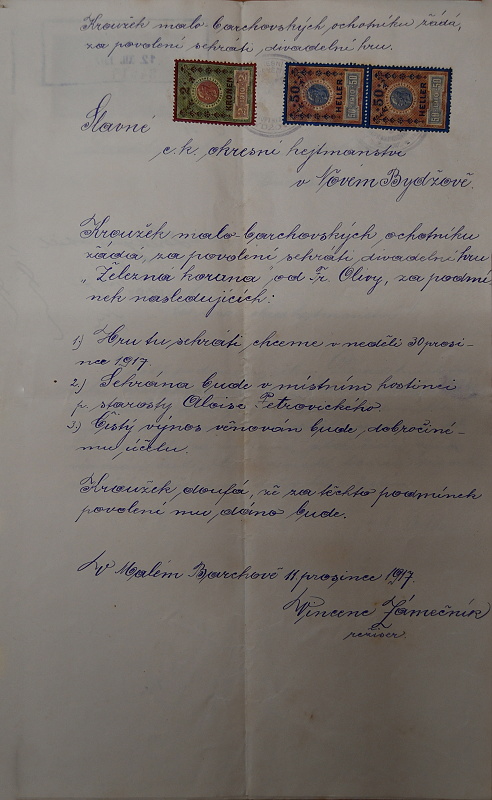 Kroužek malo-barchovských ochotníku žádá,
za povolení sehráti divadelní hru.
12. XII.
2 KRONEN 2
50 HELLER 50
50 HELLER 50
Slavné
c. k. okresní hejtmanství
v Novém Bydžově.
Kroužek malo-barchovských ochotníku
žádá, za povolení sehráti divadelní hru
„Železná koruna" od Fr. Olivy, za podmí
nek následujících:
1.) Hru tu sehráti chceme v neděli 30 prosi-
nce 1917.
2.) Sehrána bude v místním hostinci
p. starosty Aloise Petrovického.
3.) Čistý výnos věnován bude dobročinné-
mu účelu.
Kroužek doufá, že za těchto podmínek
povolení mu dáno bude.
V Malém Barchově 11 prosince 1917.
Vincenc Zámečník
režiser.